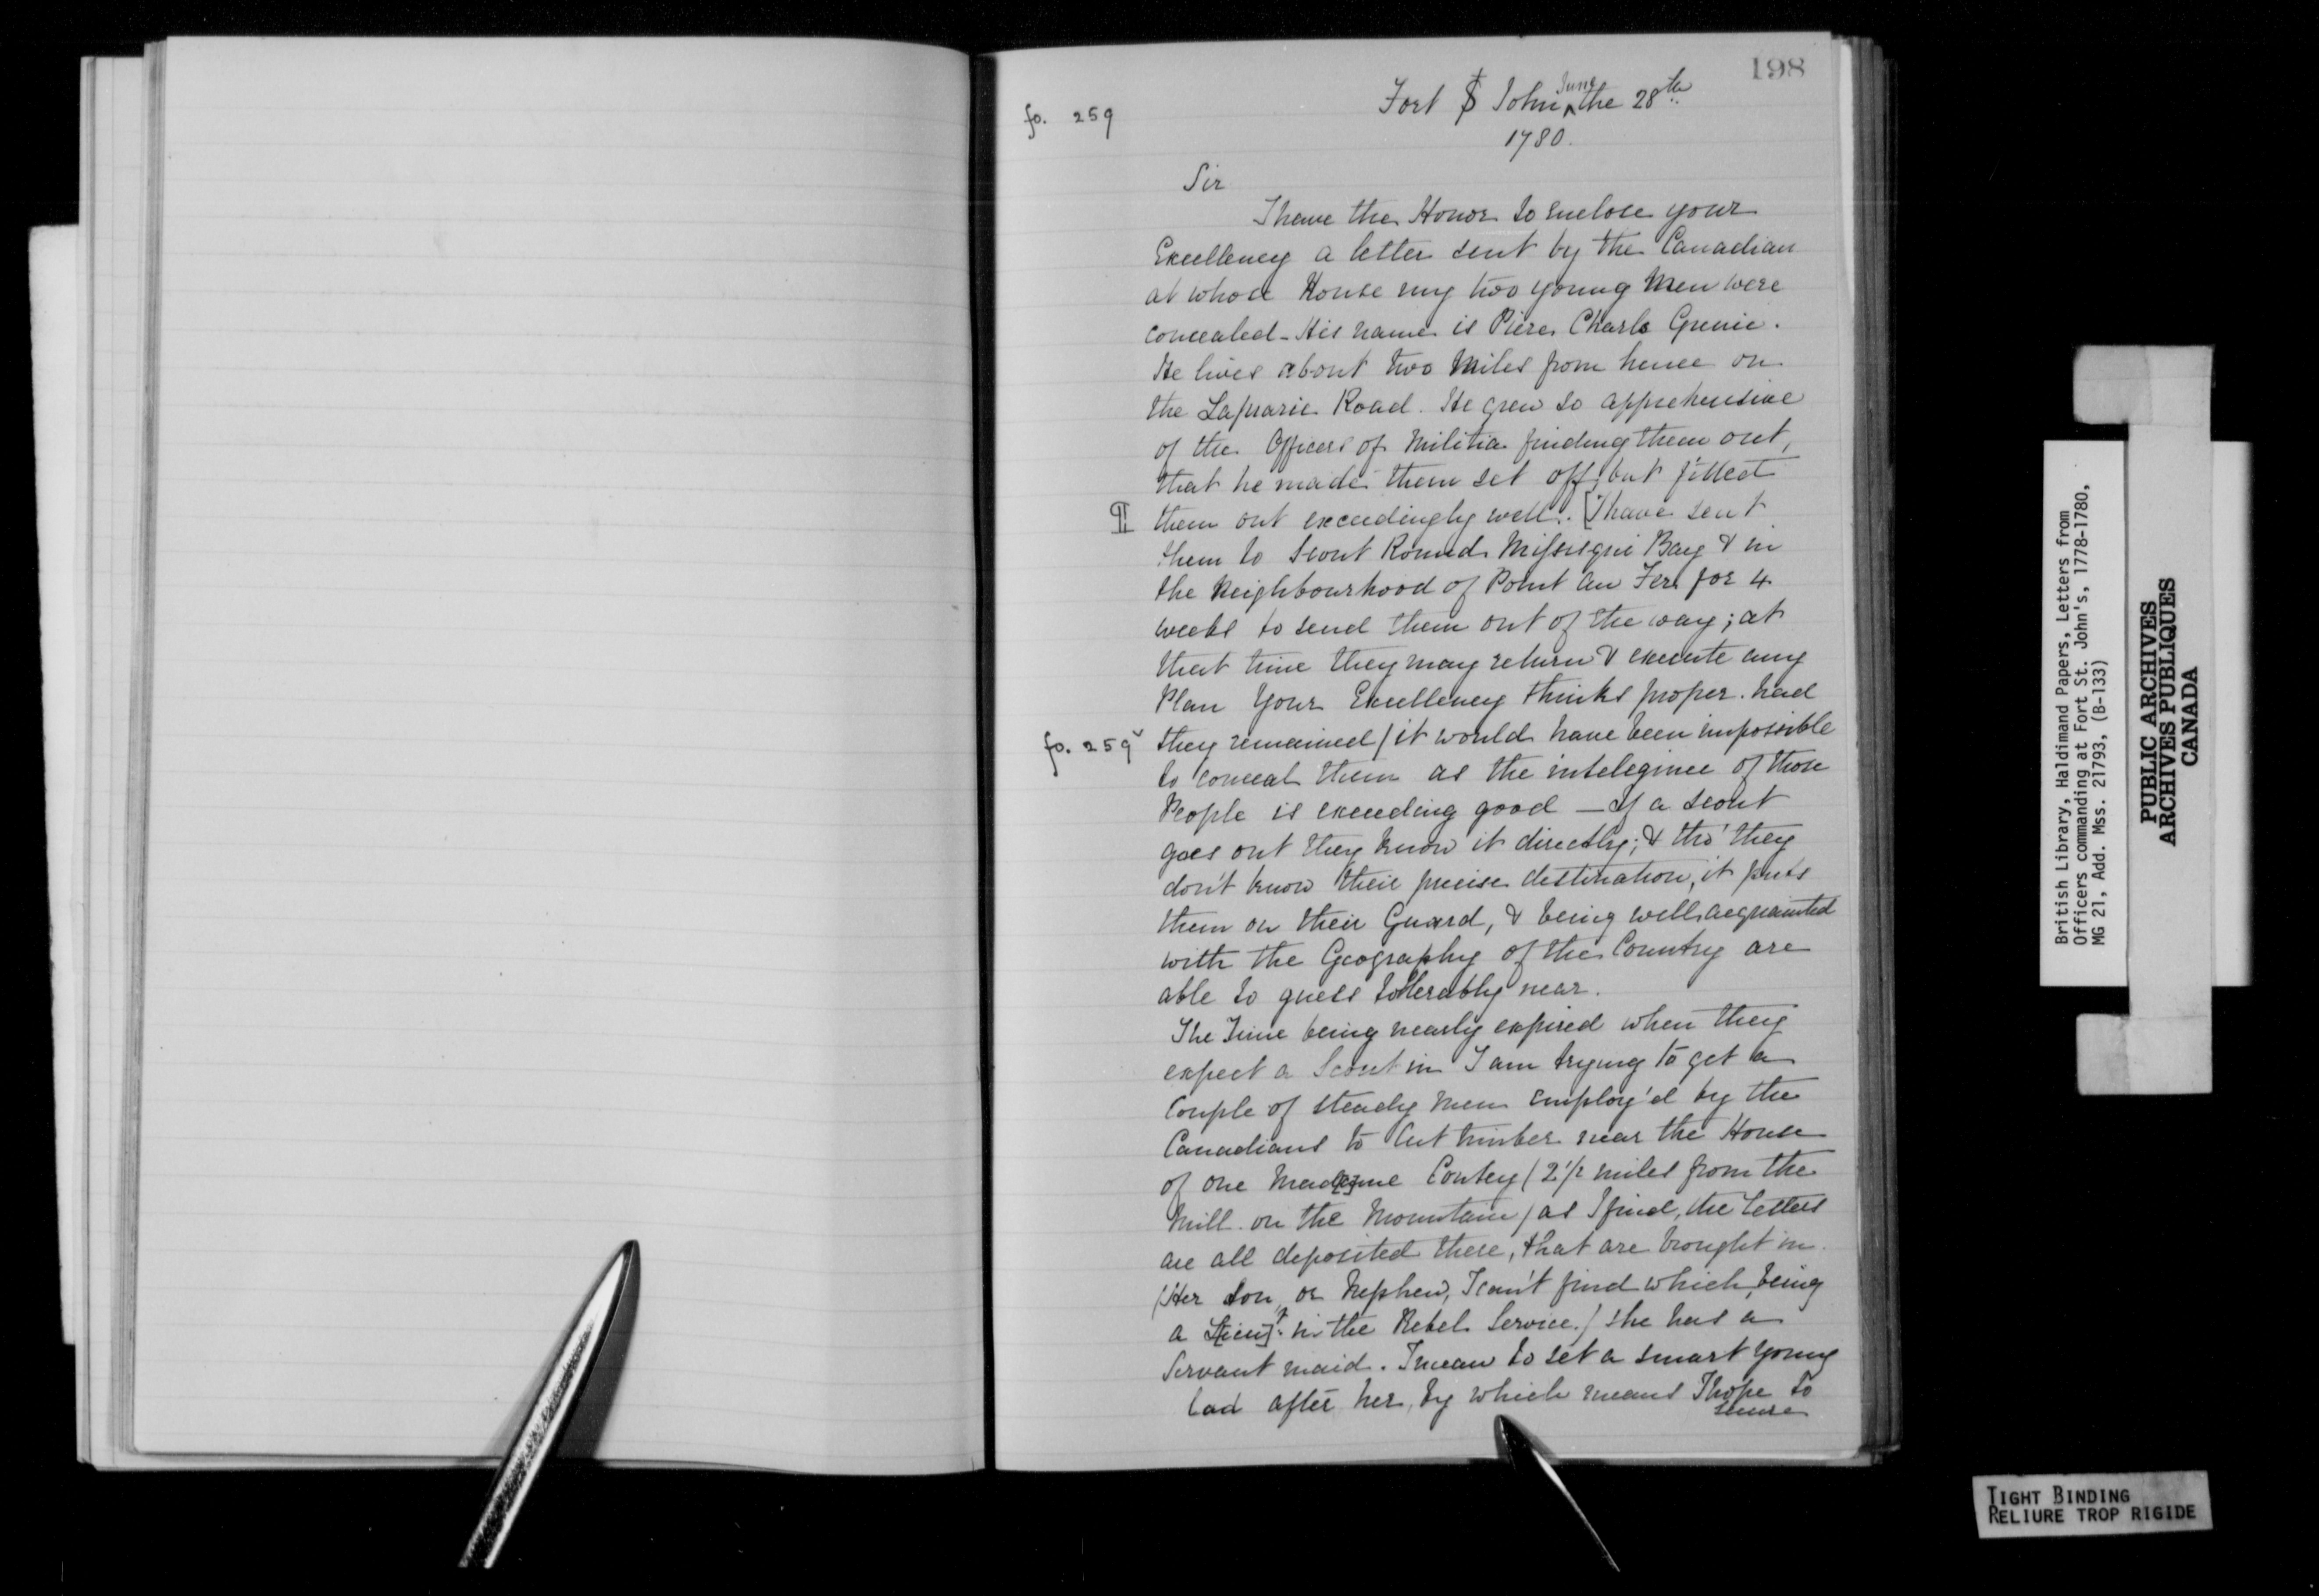 198
fo. 259
Fort St John June the 28th
1780.
Sir
I have the Honor to enclose your
Excellency a letter sent by the Canadian
at whose House my two young Men were
concealed - His name is Piere Charls Grenie.
He lives about two Miles from hence on
the Laprarie Road. He grew so apprehensive
of the Officers of Militia finding them out,
that he made them set off; but fitted
¶ them out exceedingly well. [I have sent
them to Scout Round Missisqui Bay & in
the Neighbourhood of Point au Fer for 4
weeks to send them out of the way; at
that time they may return & execute any
Plan Your Excellency thinks proper. had
fo. 259v they remained / it would have been impossible
to conceal them as the intelegince of those
People is exceeding good — If a scout
goes out they know it directly; & tho' they
don't know their precise destination, it puts
them on their Guard, & being well acquainted
with the Geography of the Country are
able to guess tollerably near.
The Time being nearly expired when they
expect a Scout in I am trying to get a
Couple of steady men employ'd by the
Canadians to Cut timber near the House
of one Mad[a]me Contey (2 1/2 miles from the
Mill on the Mountain) as I find, the Letters
are all deposited there, that are brought in.
(Her son, or Nephew, I can't find which, being
a L[ieu]t. in the Rebel Service.) she has a
Servant maid. I mean to set a smart young
lad after her, by which means I hope to
secure
British Library, Haldimand Papers, Letters from
Officers commanding at Fort St. John's, 1778-1780,
MG 21, Add. Mss. 21793, (B-133)
PUBLIC ARCHIVES
ARCHIVES PUBLIQUES
CANADA
TIGHT BINDING
RELIURE TROP RIGIDE